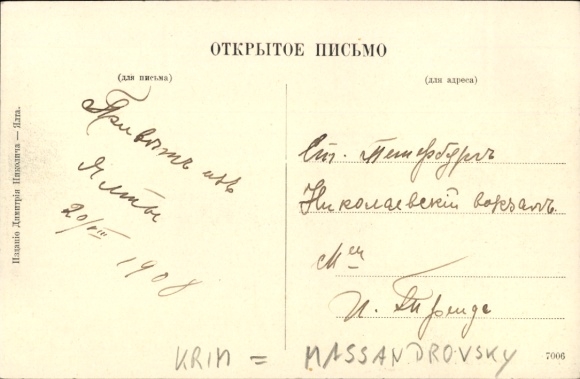 ОТКРЫТОЕ ПИСЬМО
(для письма)
Приветъ изъ
Ялты
20/VIII 1908
(для адреса)
Спт. Петербургъ
Николаевскій вокзалъ.
И.
Изданіе Димитрія Николича — Ялта.
KRIM = MASSANDROVSKY
7006